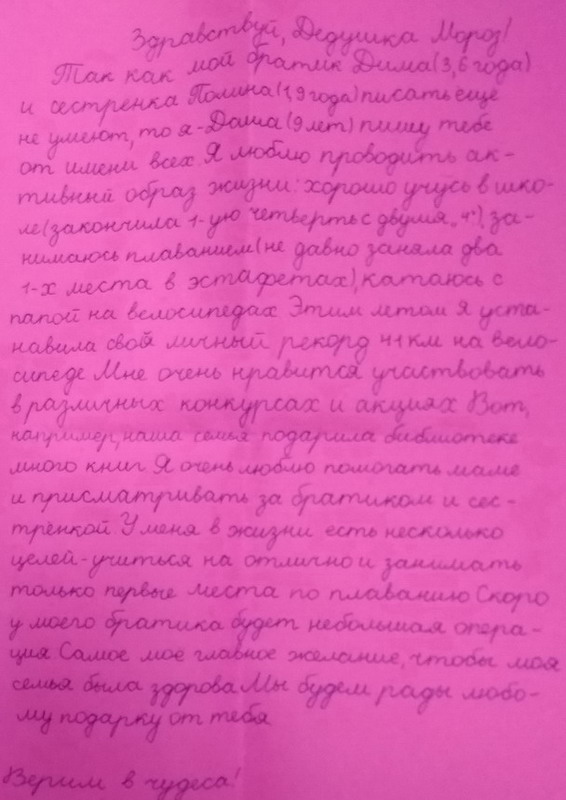 Здравствуй, Дедушка Мороз!
Так как мой братик Дима(3,6 года)
и сестренка Полина(1,9 года)писать еще
не умеют, то я-Даша(9 лет) пишу тебе
от имени всех. Я люблю проводить ак-
тивный образ жизни: хорошо учусь в шко-
ле(закончила 1-ую четверть с двумя „4"), за-
нимаюсь плаванием(не давно заняла два
1-х места в эстафетах), катаюсь с
папой на велосипедах Этим летом я уста-
навила свой личный рекорд 41 км на вело-
сипеде Мне очень нравится участвовать
в различных конкурсах и акциях Вот,
например, наша семья подарила библиотеке
много книг Я очень люблю помогать маме
и присматривать за братиком и сес-
тренкой. У меня в жизни есть несколько
целей-учиться на отлично и занимать
только первые места по плаванию Скоро
у моего братика будет небольшая опера-
ция Самое мое главное желание, чтобы моя
семья была здорова Мы будем рады любо-
му подарку от тебя
Верим в чудеса!